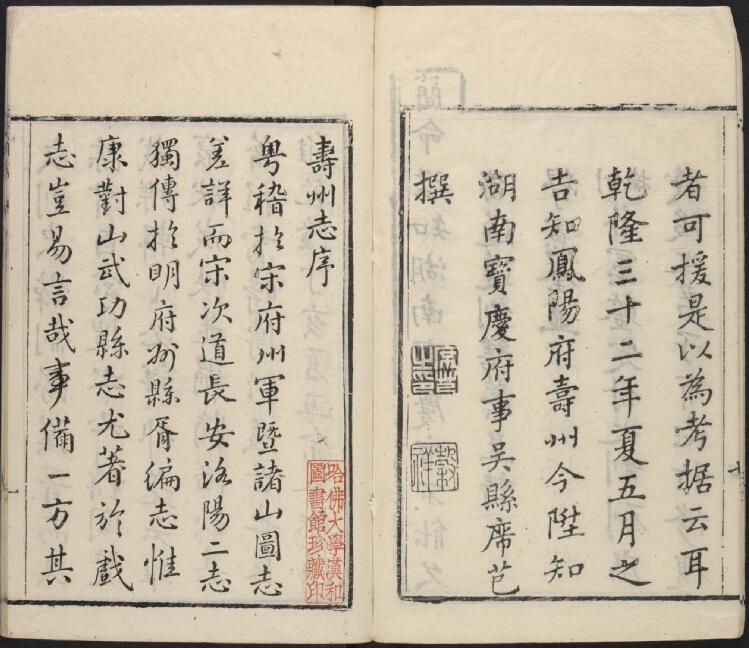 者可援是以為考据云耳
乾隆三十二年夏五月之
吉知鳳陽府壽州今陞知
湖南寶慶府事吳縣席芑
撰
壽州志序
粤稽於宋府州軍暨諸山圖志
差詳而宋次道長安洛陽二志
獨傳於明府州縣胥編志惟
康對山武功縣志尤著於戲
志豈易言哉事備一方其
哈佛大學漢和
圖書館珍藏印